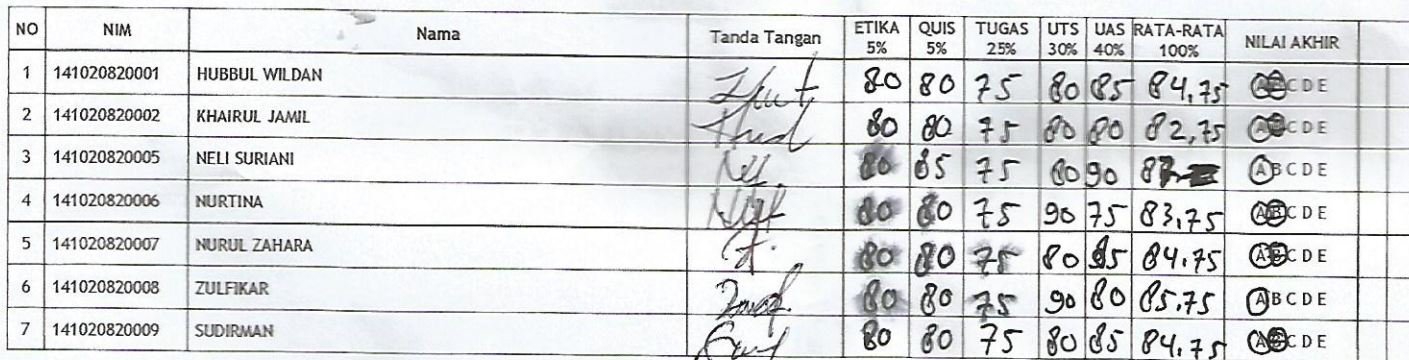 NO NIM Nama Tanda Tangan ETIKA 5% QUIS 5% TUGAS 25% UTS 30% UAS 40% RATA-RATA 100% NILAI AKHIR
1 141020820001 HUBBUL WILDAN 80 80 75 80 85 84,75 A B C D E
2 141020820002 KHAIRUL JAMIL 80 80 75 80 80 82,75 A B C D E
3 141020820005 NELI SURIANI 80 85 75 80 90 A B C D E
4 141020820006 NURTINA 80 80 75 90 75 83,75 A B C D E
5 141020820007 NURUL ZAHARA 80 80 75 80 85 84.75 A B C D E
6 141020820008 ZULFIKAR 80 80 75 90 80 85.75 A B C D E
7 141020820009 SUDIRMAN 80 80 75 80 85 84,75 A B C D E